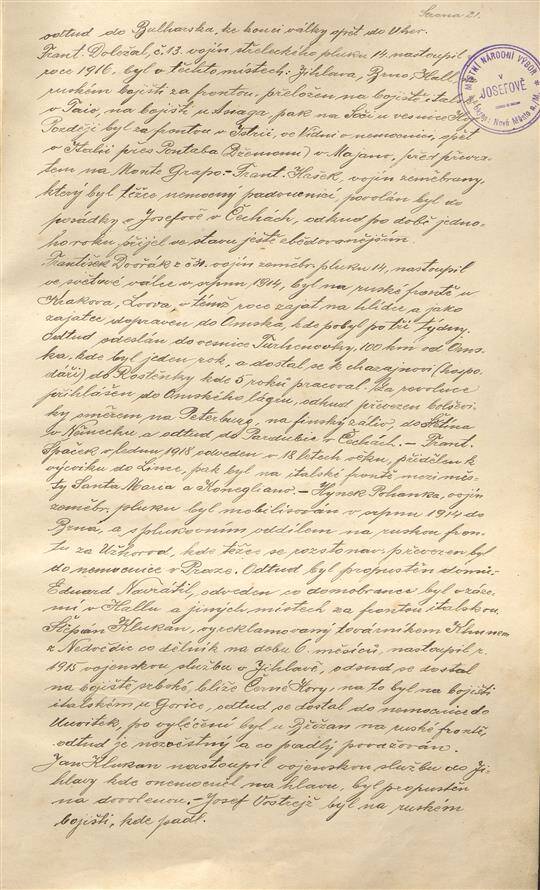 Strana 21.
odtud do Bulharska, ke konci války zpět do Uher.
Frant. Doležal, č. 13. vojín střeleckého pluku 14, nastoupil
roce 1916, byl v těchto místech: Jihlava, Brno, Hall
ruském bojišti za frontou, přeložen na bojiště ital
v Taio, na bojišti u Asiaga, pak na Soči u vesnice
Později byl za frontou v Istrii, ve Vídni v nemocnici, zpět
v Italii přes Pontaba v Majano, před převra-
tem na Monte Grapo. - Frant. Hašek, vojín zeměbrany,
který byl těžce nemocný padoucnicí, povolán byl do
posádky v Josefově v Čechách, odkud po době jedno-
ho roku přijel ve stavu ještě zbědovanějším.
František Dvořák z č. 31. vojín zeměbr. pluku 14, nastoupil
ve světové válce v srpnu 1914, byl na ruské frontě u
Krakova, Lvova, v témž roce zajat na hlídce a jako
zajatec dopraven do Omska, kde pobyl po tři týdny.
Odtud odeslán do vesnice 100 km od Oms-
ka, kde byl jeden rok, a dostal se k chazajnovi (hospo-
dáři) do kde 5 roků pracoval. Za revoluce
přihlášen do Omského lágru, odkud převezen bolševi-
ky směrem na Peterburg, na finský záliv, do Štětína
v Německu a odtud do Pardubic v Čechách. - Frant.
Špaček, v lednu 1918 odveden v 18 letech věku, přidělen k
výcviku do Lince, pak byl na italské frontě mezi měs-
ty Santa Maria a Konegliano. - Hynek Pohanka, vojín
zeměbr. pluku byl mobilisován v srpnu 1914 do
Brna, a s plukovním oddílem na ruskou fron-
tu za Užhorod, kde těžce se rozstonav, převezen byl
do nemocnice v Praze. Odtud byl propuštěn domů.
Eduard Navrátil, odveden co domobranec byl v záze-
mí v Hallu a jiných místech za frontou italskou.
Štěpán Klukan, vyreklamovaný továrníkem
z Nedvědic co dělník na dobu 6. měsíců, nastoupil r.
1915 vojenskou službu v Jihlavě, odsud se dostal
na bojiště srbské, blíže Černé Hory, na to byl na bojišti
italském u Gorice, odtud se dostal do nemocnice do
po vyléčení byl u na ruské frontě,
odtud je nezvěstný a co padlý považován.
Jan Klukan nastoupil vojenskou službu do Ji-
hlavy kde onemocněl na hlavu, byl propuštěn
na dovolenou. - Josef Vostrejž byl na ruském
bojišti, kde padl.
MÍSTNÍ NÁRODNÍ VÝBOR
V
JOSEFOVĚ
Nové Město n/M.